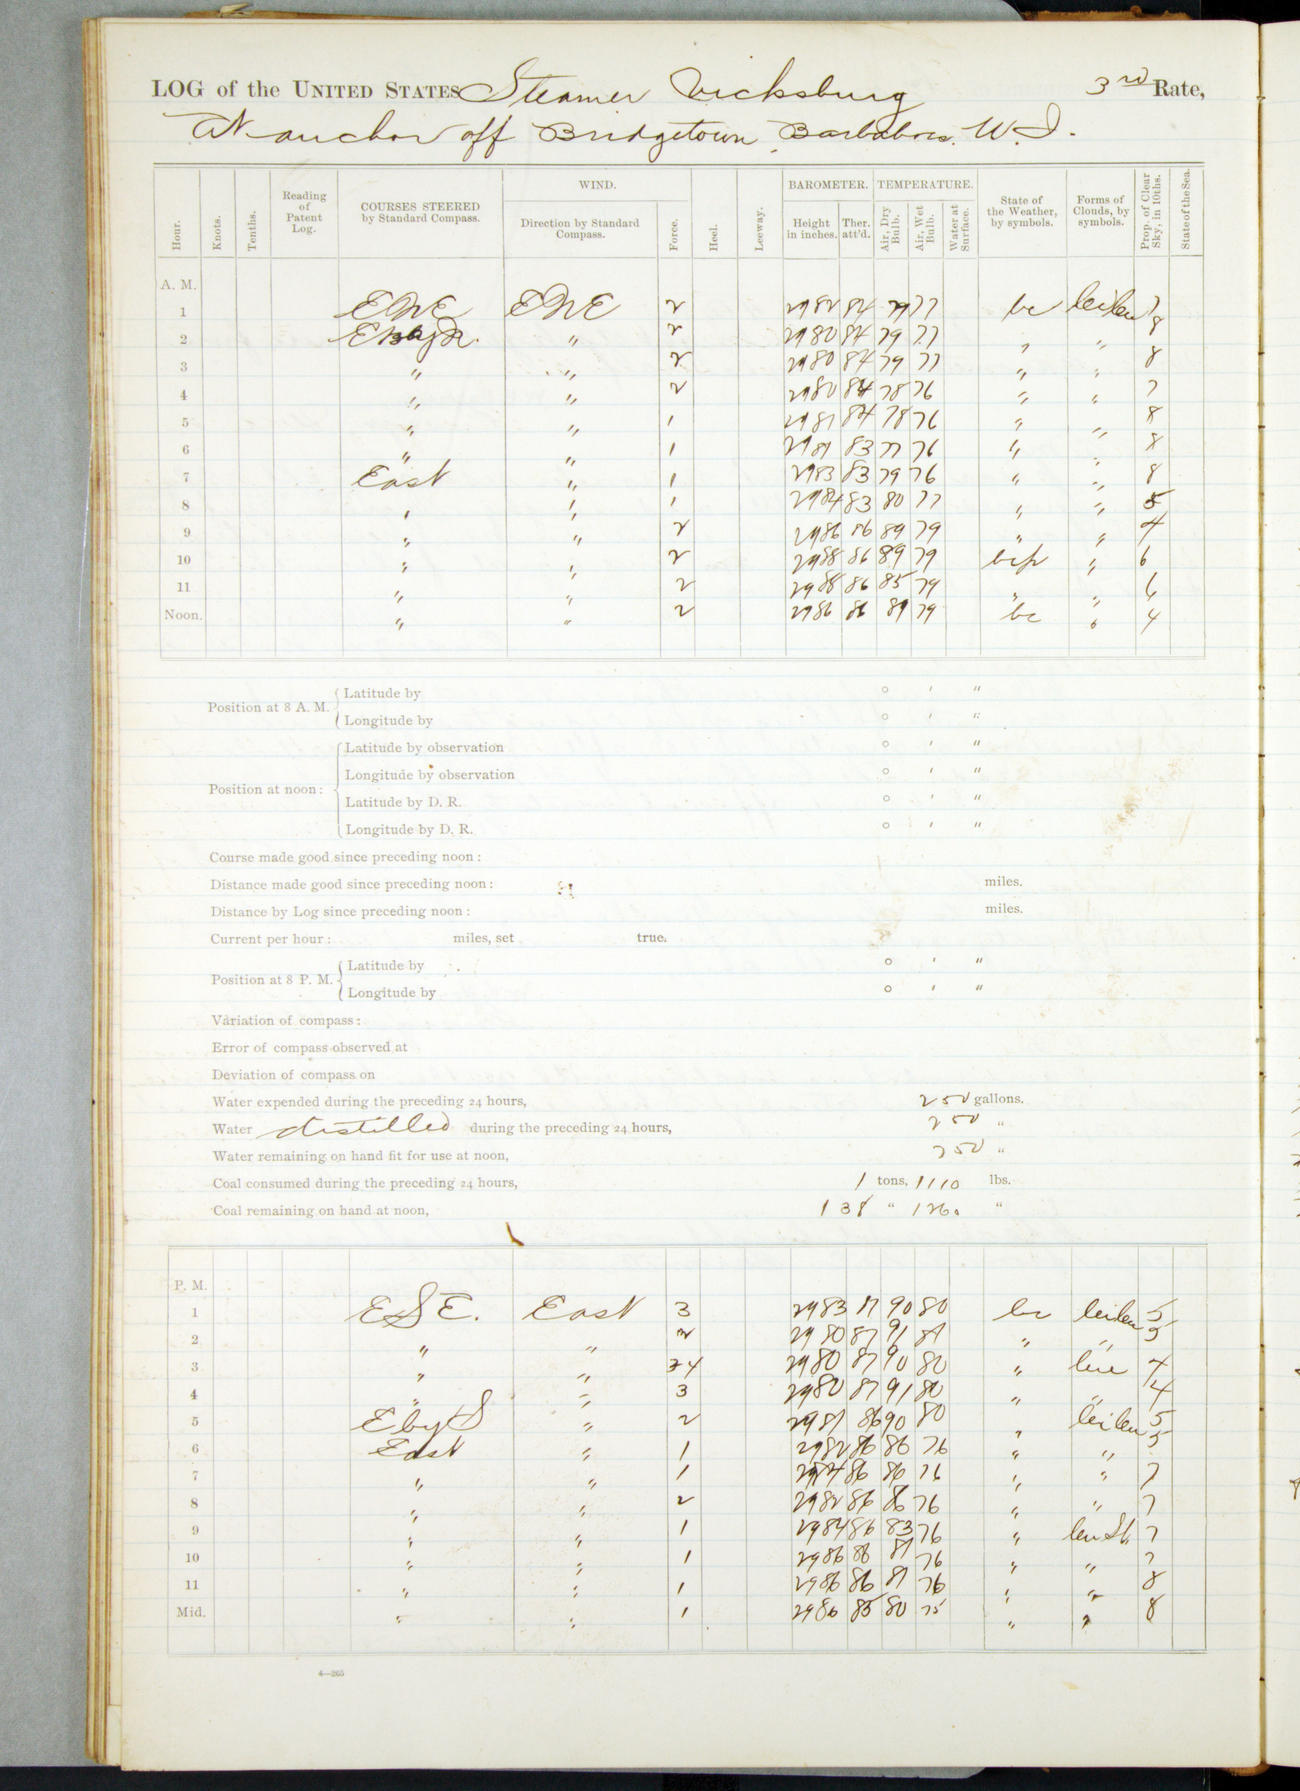 LOG of the UNITED STATES Steamer Vicksburg 3rd Rate,
At anchor off Bridgetown, Barbados. W. I.
WIND. BAROMETER. TEMPERATURE.
Hour. Knots. Tenths. Reading of Patent Log. COURSES STEERED by Standard Compass. Direction by Standard Compass. Force. Heel. Leeway. Height in inches. Ther. att'd. Air, Dry Bulb. Air, Wet Bulb. Water at Surface. State of the Weather, by symbols. Forms of Clouds, by symbols. Prop. of Clear Sky, in 10ths. State of the Sea.
A. M.
1 ENE ENE 2 2982 84 79 77 bc 7
2 E by N. " 2 2980 84 79 77 " " 8
3 " " 2 2980 84 79 77 " " 8
4 " " 2 2980 84 78 76 " " 7
5 " " 1 2981 84 78 76 " " 8
6 " " 1 2981 83 77 76 " " 8
7 East " 1 2983 83 79 76 " " 8
8 " " 1 2984 83 80 77 " " 5
9 " " 2 2986 86 89 79 " " 4
10 " " 2 2988 86 89 79 bcp " 6
11 " " 2 2988 86 85 79 " " 6
Noon. " " 2 2986 86 89 79 bc " 4
Position at 8 A. M. Latitude by ° ' "
Longitude by ° ' "
Position at noon: Latitude by observation ° ' "
Longitude by observation ° ' "
Latitude by D. R. ° ' "
Longitude by D. R. ° ' "
Course made good since preceding noon:
Distance made good since preceding noon: miles.
Distance by Log since preceding noon: miles.
Current per hour: miles, set true.
Position at 8 P. M. Latitude by ° ' "
Longitude by ° ' "
Variation of compass:
Error of compass observed at
Deviation of compass on
Water expended during the preceding 24 hours, 250 gallons.
Water distilled during the preceding 24 hours, 250 "
Water remaining on hand fit for use at noon, 750 "
Coal consumed during the preceding 24 hours, 1 tons, 1110 lbs.
Coal remaining on hand at noon, 138 " 1260 "
P. M.
1 ESE. East 3 2983 87 90 80 bc 5
2 " " 2 2980 87 91 81 " " 5
3 " " 2980 87 90 80 " 4
4 " " 3 2980 87 91 80 " " 4
5 E by S " 2 2981 86 90 80 " 5
6 East " 1 2982 86 86 76 " " 5
7 " " 1 86 86 76 " " 7
8 " " 2 2982 86 86 76 " " 7
9 " " 1 2984 86 83 76 " 7
10 " " 1 2986 86 81 76 " " 7
11 " " 1 2986 86 81 76 " " 8
Mid. " " 1 2986 85 80 75 " " 8
4—265